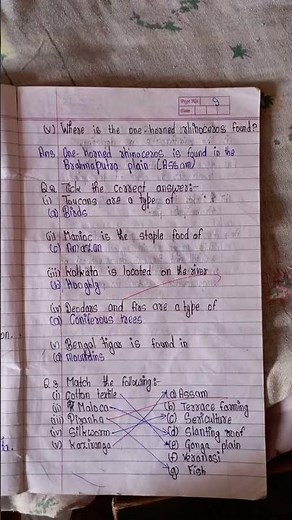 Page No. 9
Date
(v) Where is the one-horned rhinoceros found?
Ans One-horned rhinoceros is found in the
Brahmaputra plain (Assam)
Q.2 Tick the correct answer:-
(i) Toucans are a type of
(a) Birds
(ii) Manioc is the staple food of
(c) Amazon
(iii) Kolkata is located on the river
(b) Hooghly
(iv) Deodars and firs are a type of
(a) Coniferous trees
(v) Bengal tiger is found in
(a) mountains
Q.3 Match the following:-
(i) Cotton textile (a) Assam
(ii) Maloca (b) Terrace farming
(iii) Piranha (c) Sericulture
(iv) Silkworm (d) Slanting roof
(v) Kaziranga (e) Ganga plain
(f) Varanasi
(g) Fish